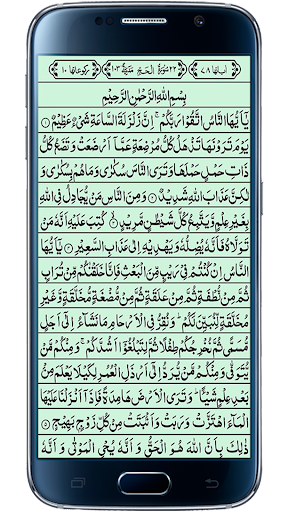 اٰیاتها ۷۸ ﴿۲۲ سُوْرَةُ الْحَجِّ مَدَنِيَّةٌ ۱۰۳﴾ رکوعاتها ۱۰
بِسْمِ اللهِ الرَّحْمٰنِ الرَّحِيْمِ
يٰۤاَيُّهَا النَّاسُ اتَّقُوْا رَبَّكُمْ ۚ اِنَّ زَلْزَلَةَ السَّاعَةِ شَيْءٌ عَظِيْمٌ ۝۱
يَوْمَ تَرَوْنَهَا تَذْهَلُ كُلُّ مُرْضِعَةٍ عَمَّاۤ اَرْضَعَتْ وَتَضَعُ كُلُّ
ذَاتِ حَمْلٍ حَمْلَهَا وَتَرَى النَّاسَ سُكٰرٰى وَمَا هُمْ بِسُكٰرٰى
وَلٰكِنَّ عَذَابَ اللهِ شَدِيْدٌ ۝۲ وَمِنَ النَّاسِ مَنْ يُّجَادِلُ فِي اللهِ
بِغَيْرِ عِلْمٍ وَّيَتَّبِعُ كُلَّ شَيْطٰنٍ مَّرِيْدٍ ۝۳ كُتِبَ عَلَيْهِ اَنَّهٗ مَنْ
تَوَلَّاهُ فَاَنَّهٗ يُضِلُّهٗ وَيَهْدِيْهِ اِلٰى عَذَابِ السَّعِيْرِ ۝۴ يٰۤاَيُّهَا
النَّاسُ اِنْ كُنْتُمْ فِيْ رَيْبٍ مِّنَ الْبَعْثِ فَاِنَّا خَلَقْنٰكُمْ مِّنْ تُرَابٍ
ثُمَّ مِنْ نُّطْفَةٍ ثُمَّ مِنْ عَلَقَةٍ ثُمَّ مِنْ مُّضْغَةٍ مُّخَلَّقَةٍ وَّغَيْرِ
مُخَلَّقَةٍ لِّنُبَيِّنَ لَكُمْ ؕ وَنُقِرُّ فِي الْاَرْحَامِ مَا نَشَآءُ اِلٰۤى اَجَلٍ
مُّسَمًّى ثُمَّ نُخْرِجُكُمْ طِفْلًا ثُمَّ لِتَبْلُغُوْۤا اَشُدَّكُمْ ۚ وَمِنْكُمْ مَّنْ
يُّتَوَفّٰى وَمِنْكُمْ مَّنْ يُّرَدُّ اِلٰۤى اَرْذَلِ الْعُمُرِ لِكَيْلَا يَعْلَمَ مِنْۢ
بَعْدِ عِلْمٍ شَيْـًٔا ؕ وَتَرَى الْاَرْضَ هَامِدَةً فَاِذَاۤ اَنْزَلْنَا عَلَيْهَا
الْمَآءَ اهْتَزَّتْ وَرَبَتْ وَاَنْۢبَتَتْ مِنْ كُلِّ زَوْجٍۢ بَهِيْجٍ ۝۵
ذٰلِكَ بِاَنَّ اللهَ هُوَ الْحَقُّ وَاَنَّهٗ يُحْيِ الْمَوْتٰى وَاَنَّهٗ